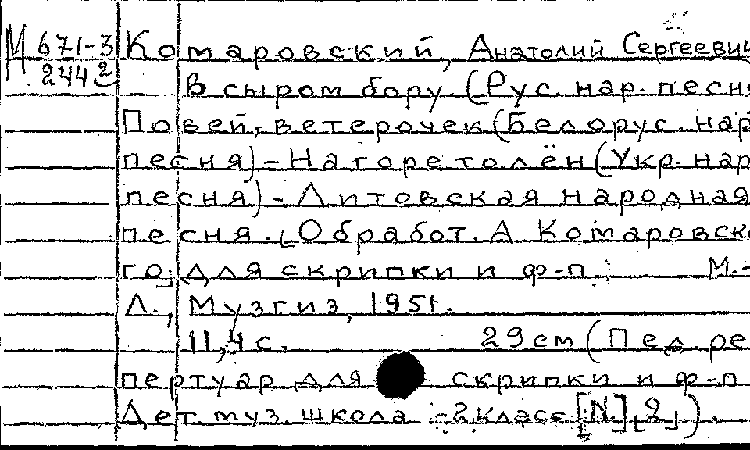 М 671-3 Комаровский, Анатолий Сергеевич
244 2 В сыром бору. (Рус. нар. песн
Повей, ветерочек (Белорус. нар
песня) - На горе то лён (Укр. нар
песня) - Литовская народная
песня. [Обработ. А Комаровско
го] для скрипки и ф-п. М.-
Л., Музгиз, 1951.
11, 4 с. 29 см (Пед. ре
пертуар для скрипки и ф-п
Дет. муз. школа - 2 класс [N] [2]).